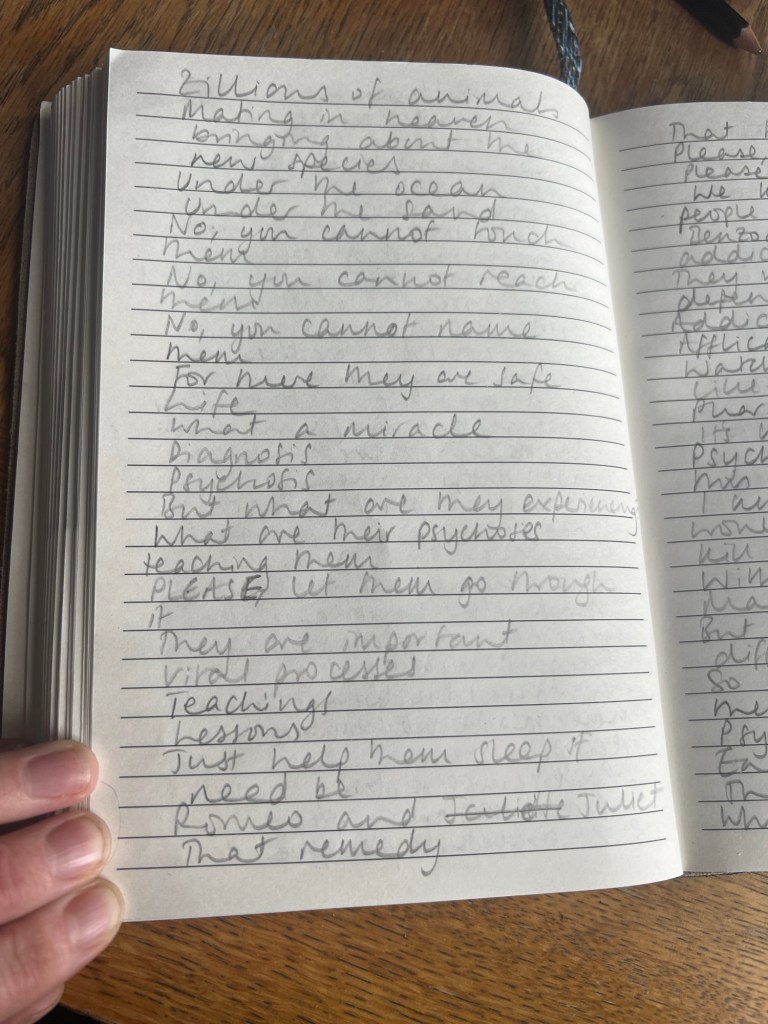 Zillions of animals
Mating in heaven
bringing about the
new species
Under the ocean
Under the sand
No, you cannot touch
them
No, you cannot reach
them
No, you cannot name
them
For there they are safe
Life
What a miracle
Diagnosis
Psychosis
But what are they experiencing
What are their psychoses
teaching them
PLEASE, let them go through
it
They are important
viral processes
Teachings
Lessons
Just help them sleep if
need be
Romeo and Juliet
That remedy
That
Please,
Please
We
people
Benzo
addic
They
depen
Addic
Afflic
Watch
Like
Phar
its
Psych
this
I am
woul
Kill
Will
Ma
But
diff
So
me
Psy
Ea
Th
Wh